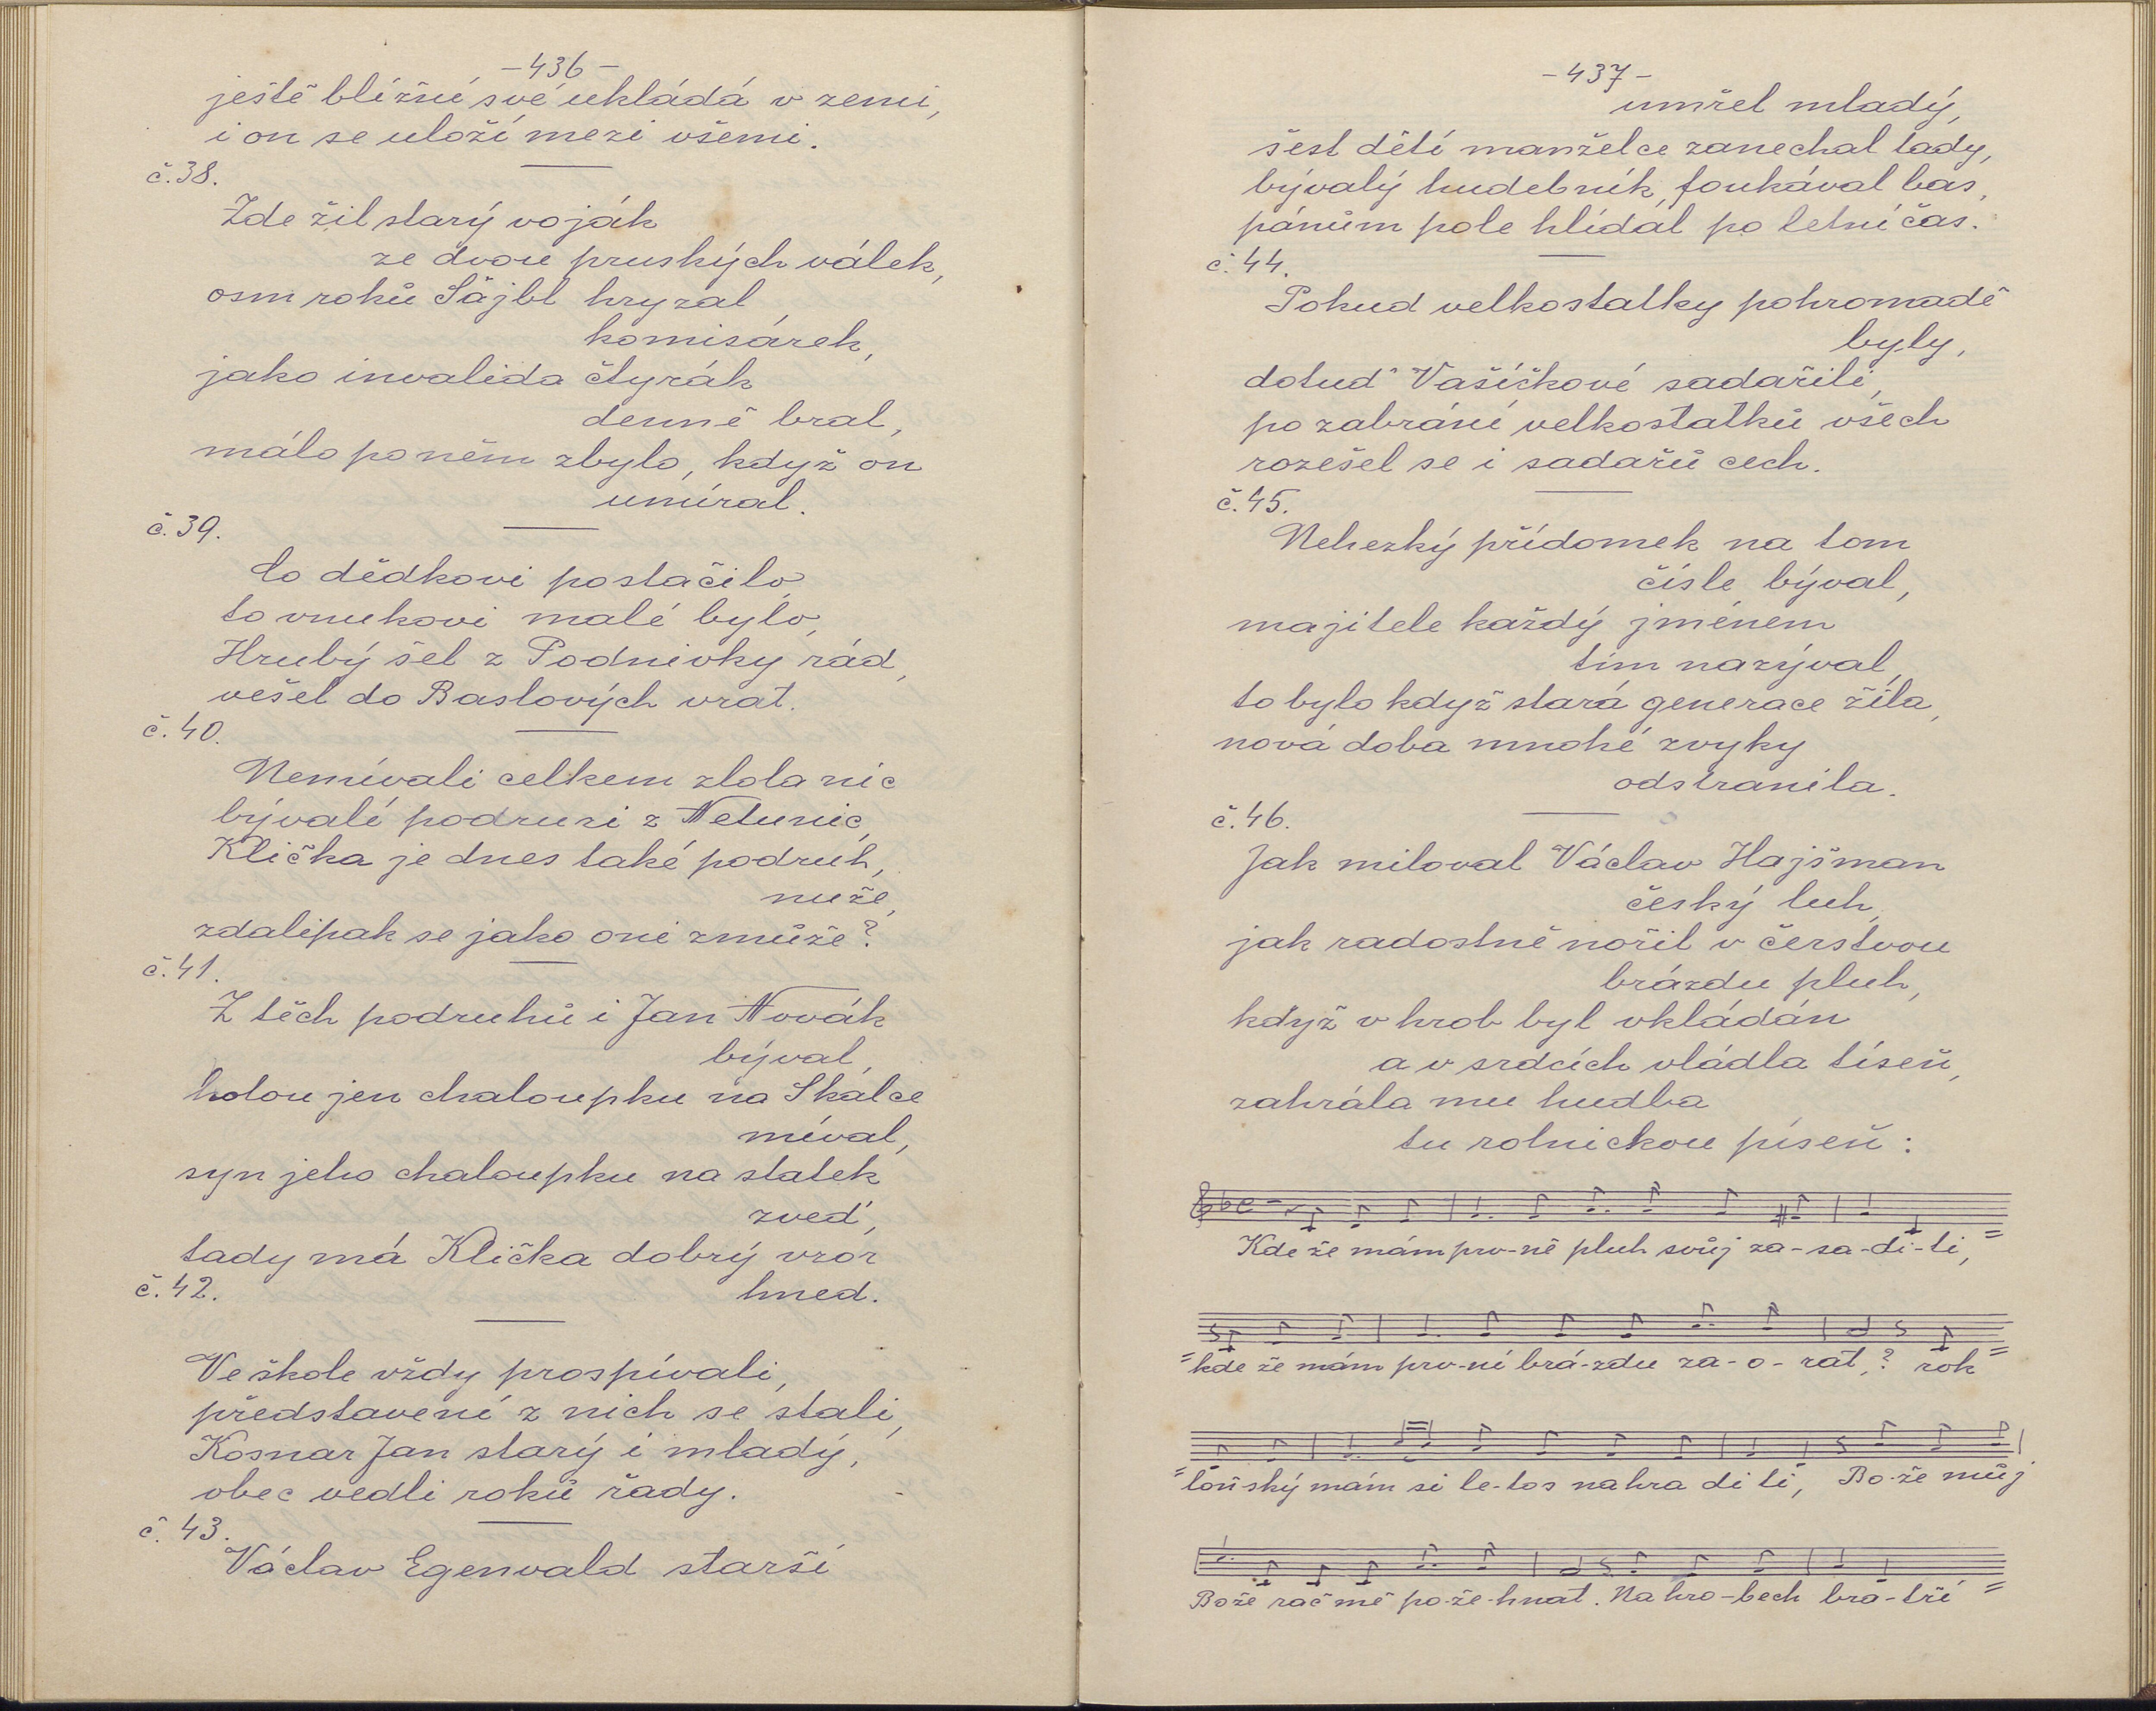 -436-
ještě bližní své ukládá v zemi,
i on se uloží mezi všemi.
č.38.
Zde žil starý voják
ze dvou pruských válek,
osm roků Šajbl hryzal
komisárek,
jako invalida čtyrák
denně bral,
málo po něm zbylo, když on
umíral.
č.39.
Co dědkovi postačilo,
to vnukovi malé bylo,
Hrubý šel z Podnivky rád,
vešel do Baslových vrat.
č.40.
Nemívali celkem zlola nic
bývalí podruzi z Netunic,
Klička je dnes také podruh,
nuže,
zdalipak se jako oni zmůže?
č.41.
Z těch podruhů i Jan Novák
býval,
holou jen chaloupku na Skálce
míval,
syn jeho chaloupku na statek
zved',
tady má Klička dobrý vzor
hned.
č.42.
Ve škole vždy prospívali,
představení z nich se stali,
Kosnar Jan starý i mladý,
obec vedli roků řady.
č.43.
Václav Egenvald starší
-437-
umřel mladý,
šest dětí manželce zanechal tady,
bývalý hudebník, foukával bas,
pánům pole hlídal po letní čas.
č.44.
Pokud velkostatky pohromadě
byly,
dotud' Vašíčkové sadařili,
po zabrání velkostatků všech
rozešel se i sadařů cech.
č.45.
Nehezký přídomek na tom
čísle býval,
majitele každý jménem
tím nazýval,
to bylo když stará generace žila,
nová doba mnohé zvyky
odstranila.
č.46.
Jak miloval Václav Hajšman
český luh,
jak radostně nořil v čerstvou
brázdu pluh,
když v hrob byl vkládán
a v srdcích vládla tíseň,
zahrála mu hudba
tu rolnickou píseň:
Kde že mám prv-ně pluh svůj za-sa-di-ti,=
=kde že mám prv-ní brá-zdu za-o-rat,? rok=
=loňský mám si le-tos nahra di ti, Bo-že můj
Bože rač mě po-že-hnat. Na hro-bech bra-tří=